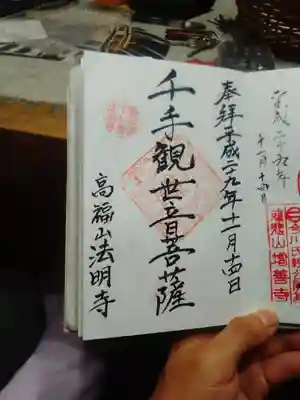 平成二十九年
十一月十四日
龍珠山増善寺
奉拝平成二十九年十一月十四日
千手観世音菩薩
高福山法明寺